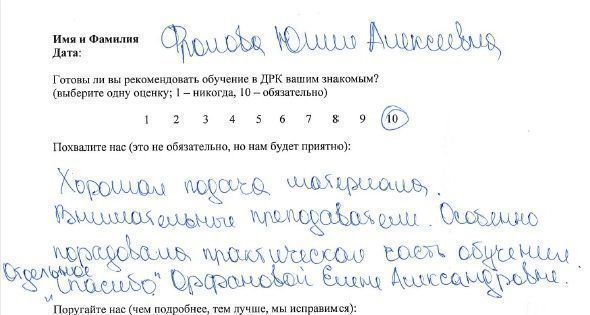 Имя и Фамилия Фролова Юлия Алексеевна
Дата:
Готовы ли вы рекомендовать обучение в ДРК вашим знакомым?
(выберите одну оценку; 1 – никогда, 10 – обязательно)
1 2 3 4 5 6 7 8 9 10
Похвалите нас (это не обязательно, но нам будет приятно):
Хорошая подача материала.
Внимательные преподаватели. Особенно
порадовала практическая часть обучения
Отдельное "Спасибо" Орфановой Елене Александровне.
Поругайте нас (чем подробнее, тем лучше, мы исправимся):